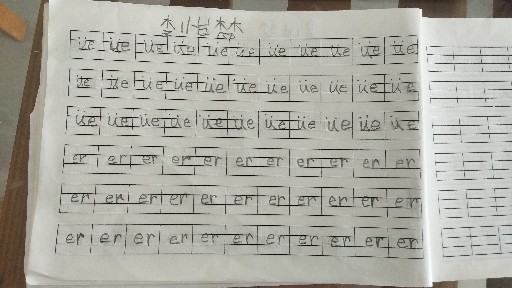 üe üe üe üe üe üe üe üe üe üe üe
üe üe üe üe üe üe üe üe üe üe üe
üe üe üe üe üe üe üe üe üe üe üe
er er er er er er er er er er er
er er er er er er er er er er er
er er er er er er er er er er er